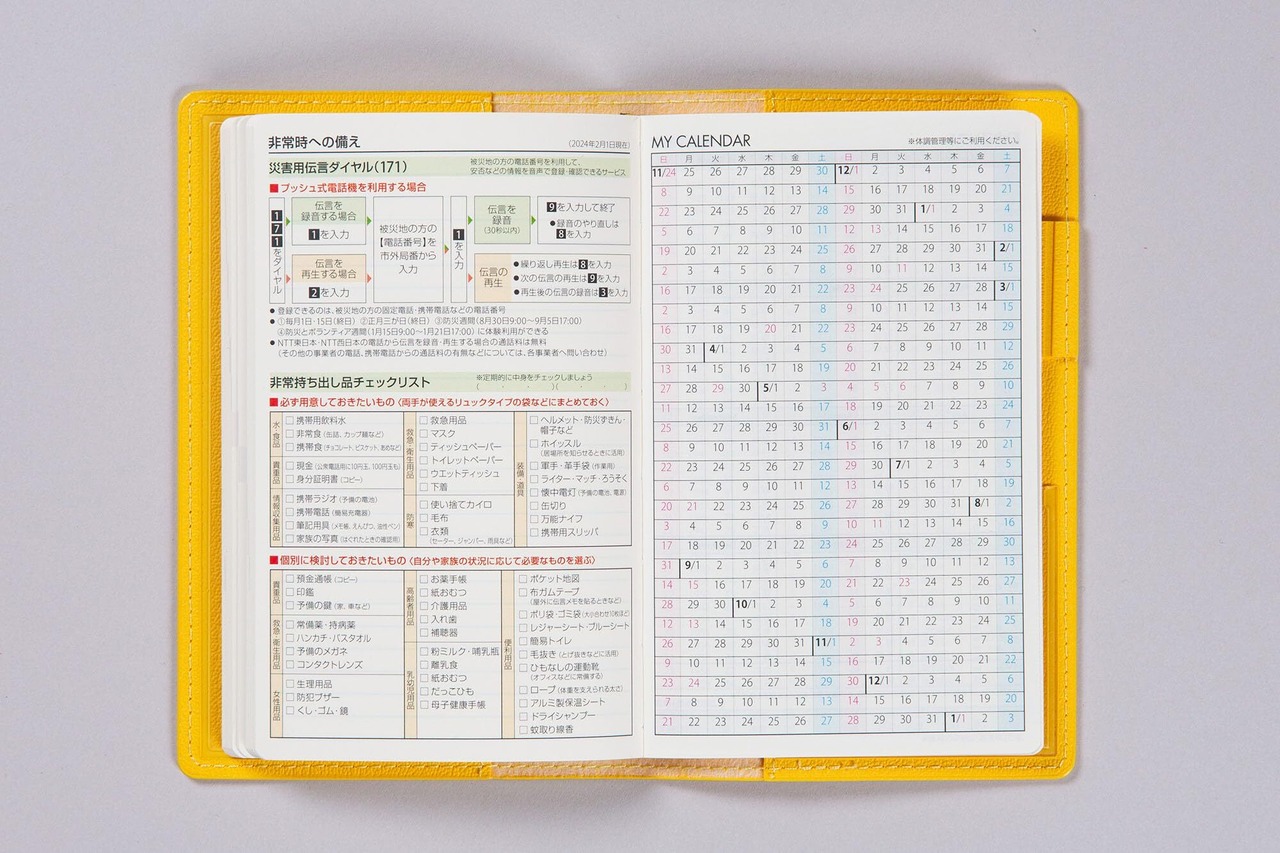 非常時への備え
(2024年2月1日現在)
災害用伝言ダイヤル(171)
被災地の方の電話番号を利用して、
安否などの情報を音声で登録・確認できるサービス
■プッシュ式電話機を利用する場合
171をダイヤル
伝言を
録音する場合
1を入力
伝言を
再生する場合
2を入力
被災地の方の
【電話番号】を
市外局番から
入力
1を入力
伝言を
録音
(30秒以内)
9を入力して終了
●録音のやり直しは
8を入力
伝言の
再生
●繰り返し再生は8を入力
●次の伝言の再生は9を入力
●再生後の伝言の録音は3を入力
●登録できるのは、被災地の方の固定電話・携帯電話などの電話番号
●①毎月1日・15日(終日) ②正月三が日(終日) ③防災週間(8月30日9:00〜9月5日17:00)
④防災とボランティア週間(1月15日9:00〜1月21日17:00)に体験利用ができる
●NTT東日本・NTT西日本の電話から伝言を録音・再生する場合の通話料は無料
(その他の事業者の電話、携帯電話からの通話料の有無などについては、各事業者へ問い合わせ)
非常持ち出し品チェックリスト
※定期的に中身をチェックしましょう
( ・ ・ )( ・ ・ )
■必ず用意しておきたいもの〈両手が使えるリュックタイプの袋などにまとめておく〉
水・食品
□携帯用飲料水
□非常食(缶詰、カップ麺など)
□携帯食(チョコレート、ビスケット、あめなど)
貴重品
□現金(公衆電話用に10円玉、100円玉も)
□身分証明書(コピー)
情報収集用品
□携帯ラジオ(予備の電池)
□携帯電話(簡易充電器)
□筆記用具(メモ帳、えんぴつ、油性ペン)
□家族の写真(はぐれたときの確認用)
救急・衛生用品
□救急用品
□マスク
□ティッシュペーパー
□トイレットペーパー
□ウエットティッシュ
□下着
防寒
□使い捨てカイロ
□毛布
□衣類
(セーター、ジャンパー、雨具など)
装備・道具
□ヘルメット・防災ずきん・
帽子など
□ホイッスル
(居場所を知らせるときに活用)
□軍手・革手袋(作業用)
□ライター・マッチ・ろうそく
□懐中電灯(予備の電池、電源)
□缶切り
□万能ナイフ
□携帯用スリッパ
■個別に検討しておきたいもの〈自分や家族の状況に応じて必要なものを選ぶ〉
貴重品
□預金通帳(コピー)
□印鑑
□予備の鍵(家、車など)
救急・衛生用品
□常備薬・持病薬
□ハンカチ・バスタオル
□予備のメガネ
□コンタクトレンズ
女性用品
□生理用品
□防犯ブザー
□くし・ゴム・鏡
高齢者用品
□お薬手帳
□紙おむつ
□介護用品
□入れ歯
□補聴器
乳幼児用品
□粉ミルク・哺乳瓶
□離乳食
□紙おむつ
□だっこひも
□母子健康手帳
便利用品
□ポケット地図
□布ガムテープ
(屋外に伝言メモを貼るときなど)
□ポリ袋・ゴミ袋(大小合わせ10枚ほど)
□レジャーシート・ブルーシート
□簡易トイレ
□毛抜き(とげ抜きなどに活用)
□ひもなしの運動靴
(オフィスなどに常備する)
□ロープ(体重を支えられる太さ)
□アルミ製保温シート
□ドライシャンプー
□蚊取り線香
MY CALENDAR
※体調管理等にご利用ください。
日 月 火 水 木 金 土 日 月 火 水 木 金 土
11/24 25 26 27 28 29 30 12/1 2 3 4 5 6 7
8 9 10 11 12 13 14 15 16 17 18 19 20 21
22 23 24 25 26 27 28 29 30 31 1/1 2 3 4
5 6 7 8 9 10 11 12 13 14 15 16 17 18
19 20 21 22 23 24 25 26 27 28 29 30 31 2/1
2 3 4 5 6 7 8 9 10 11 12 13 14 15
16 17 18 19 20 21 22 23 24 25 26 27 28 3/1
2 3 4 5 6 7 8 9 10 11 12 13 14 15
16 17 18 19 20 21 22 23 24 25 26 27 28 29
30 31 4/1 2 3 4 5 6 7 8 9 10 11 12
13 14 15 16 17 18 19 20 21 22 23 24 25 26
27 28 29 30 5/1 2 3 4 5 6 7 8 9 10
11 12 13 14 15 16 17 18 19 20 21 22 23 24
25 26 27 28 29 30 31 6/1 2 3 4 5 6 7
8 9 10 11 12 13 14 15 16 17 18 19 20 21
22 23 24 25 26 27 28 29 30 7/1 2 3 4 5
6 7 8 9 10 11 12 13 14 15 16 17 18 19
20 21 22 23 24 25 26 27 28 29 30 31 8/1 2
3 4 5 6 7 8 9 10 11 12 13 14 15 16
17 18 19 20 21 22 23 24 25 26 27 28 29 30
31 9/1 2 3 4 5 6 7 8 9 10 11 12 13
14 15 16 17 18 19 20 21 22 23 24 25 26 27
28 29 30 10/1 2 3 4 5 6 7 8 9 10 11
12 13 14 15 16 17 18 19 20 21 22 23 24 25
26 27 28 29 30 31 11/1 2 3 4 5 6 7 8
9 10 11 12 13 14 15 16 17 18 19 20 21 22
23 24 25 26 27 28 29 30 12/1 2 3 4 5 6
7 8 9 10 11 12 13 14 15 16 17 18 19 20
21 22 23 24 25 26 27 28 29 30 31 1/1 2 3